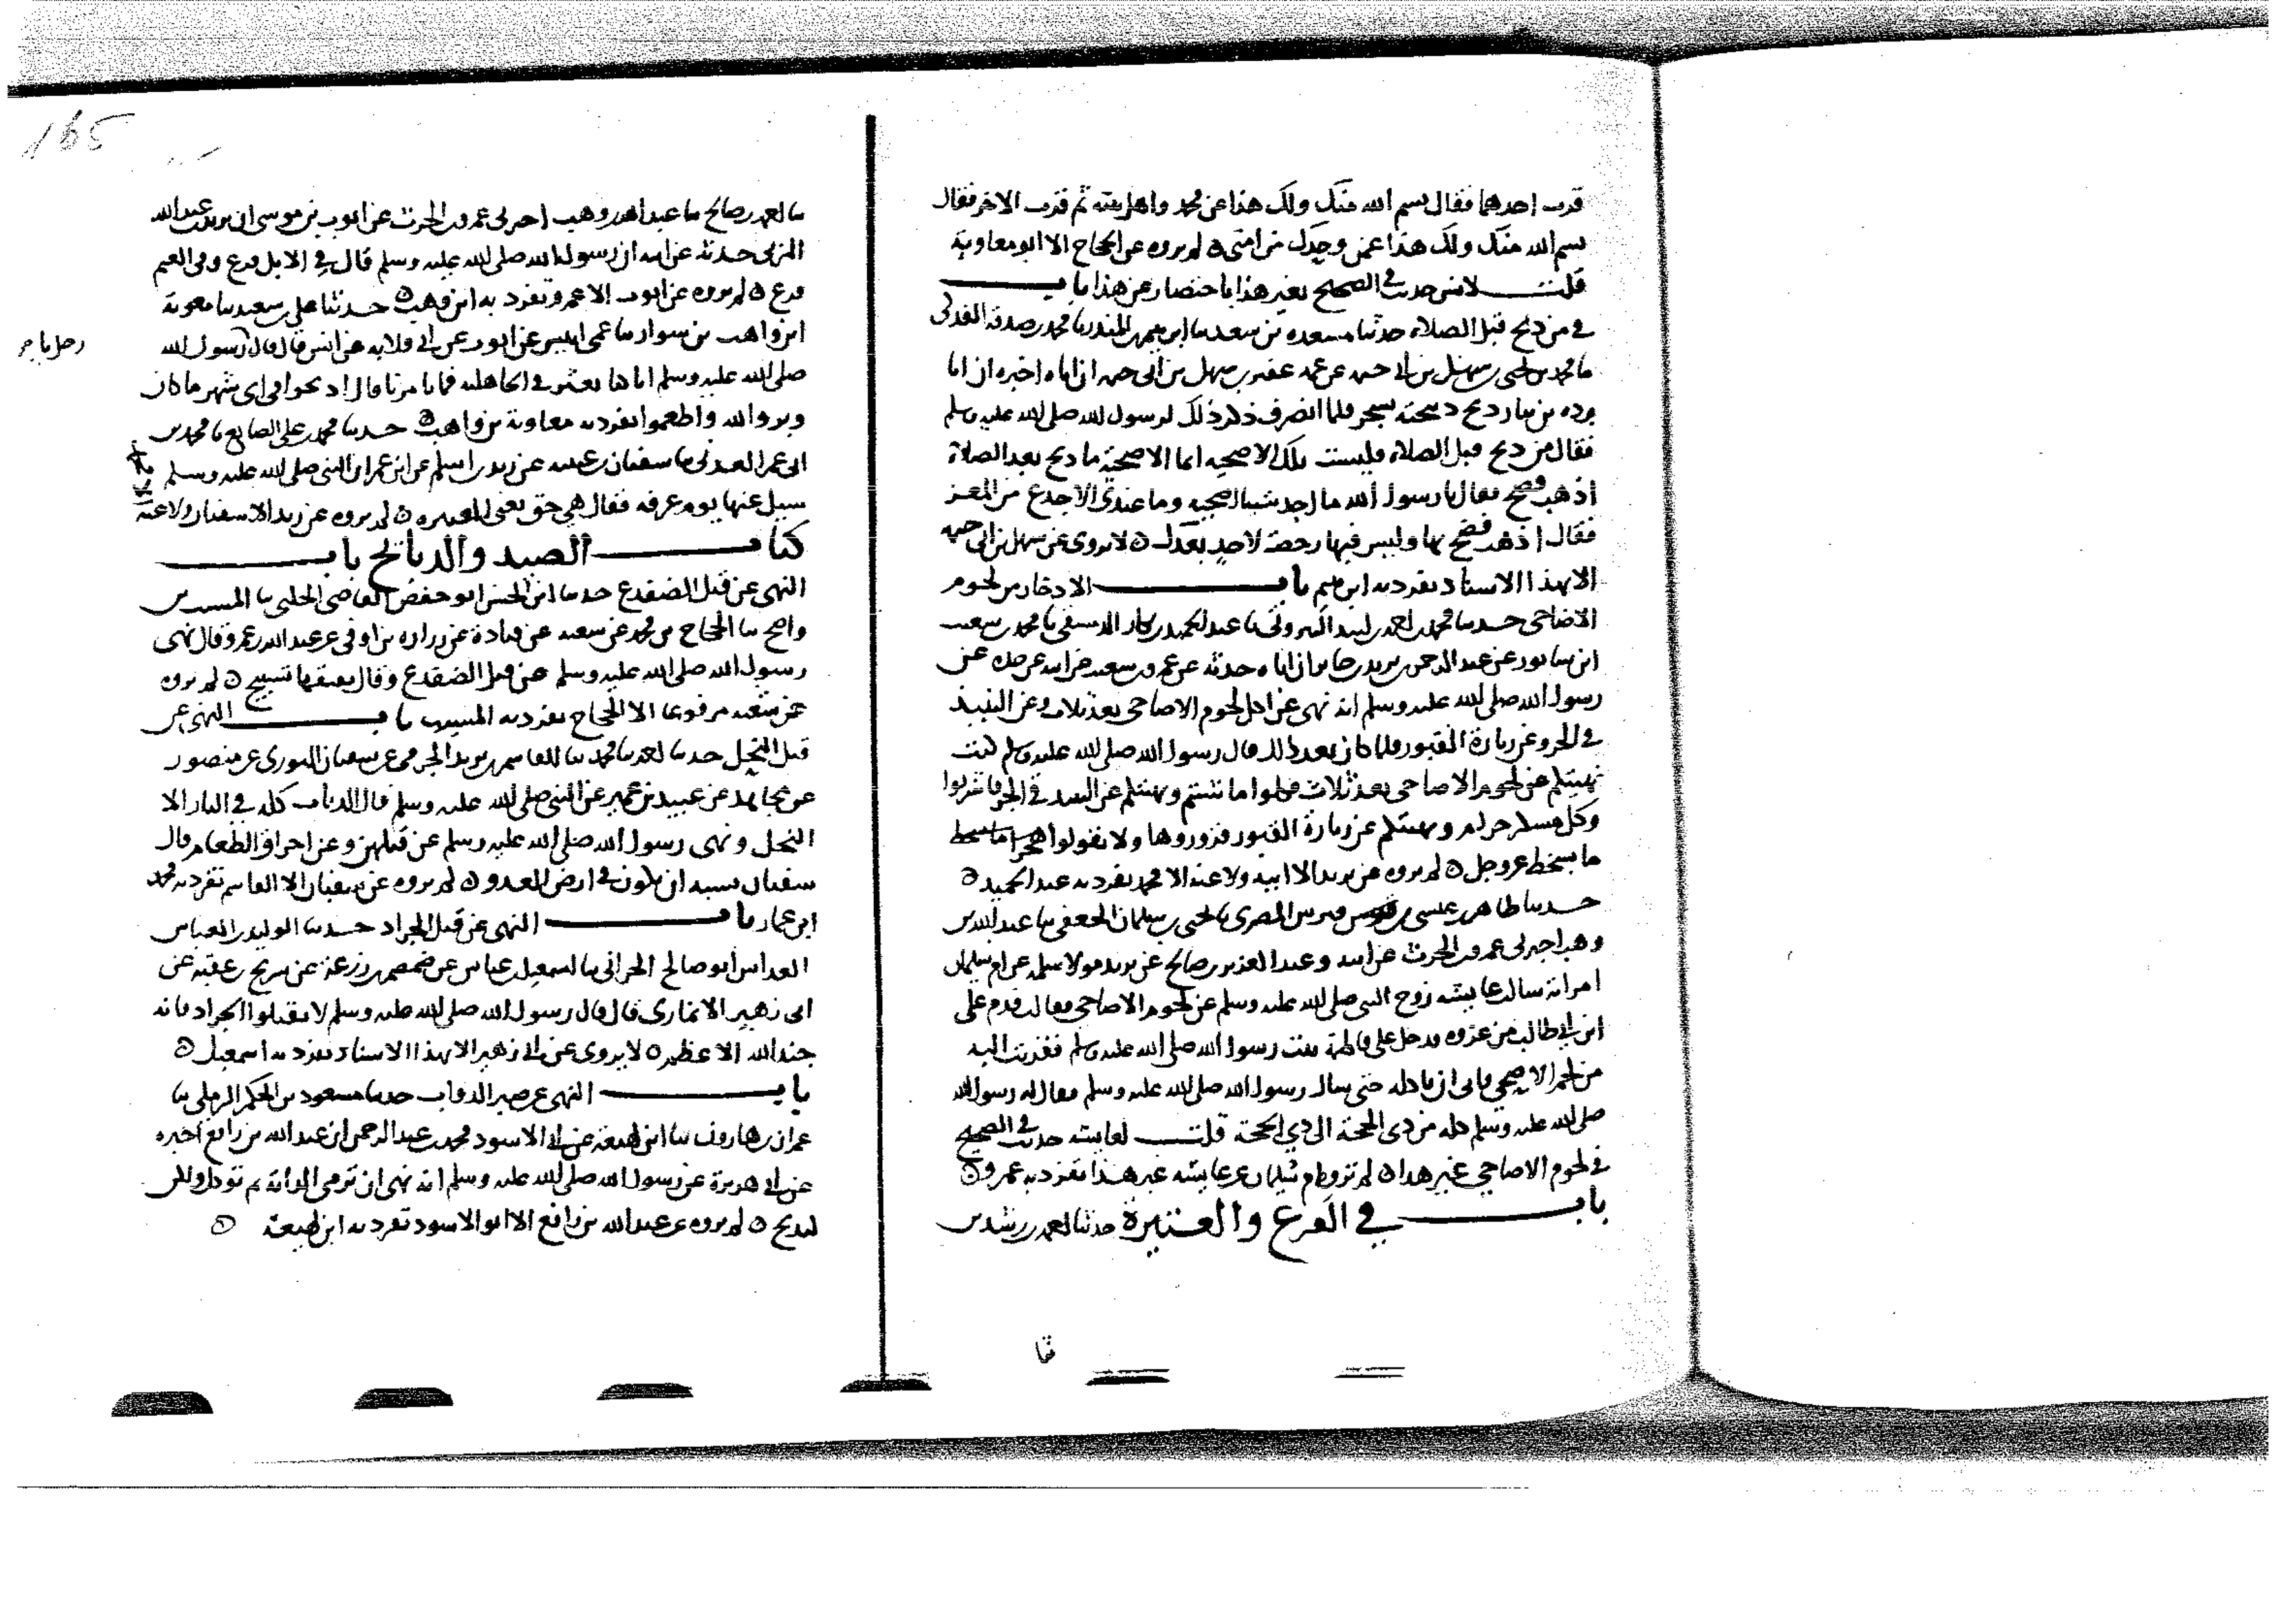 قرب احدهما فقال بسم الله منك ولك هذا عن محمد واهل بيته ثم قرب الاخر فقال
بسم الله منك ولك هذا عمن وحدك من امتي ۞ لم يروه عن الحجاج الا ابو معاوية
قلت لانس حديث في الصحيح بغير هذا باختصار عن هذا باب
في من ذبح قبل الصلاة حدثنا مسعدة بن سعد نا ابرهيم بن المنذر نا محمد بن صدقة الفدكي
نا محمد بن يحيى بن سهل بن ابي حثمة عن عمه عفير بن سهل بن ابي حثمة ان اباه اخبره ان ابا
بردة بن نيار ذبح ذبيحته بسحر فلما انصرف ذكر ذلك لرسول الله صلى الله عليه وسلم
فقال من ذبح قبل الصلاة فليست تلك الاضحية انما الاضحية ما ذبح بعد الصلاة
اذهب فضح فقال يا رسول الله ما اجد شيئا اضحيه وما عندي الا جذع من المعز
فقال اذهب فضح بها وليس فيها رخصة لاحد بعدك ۞ لا يروى عن سهل بن ابي حثمة
الا بهذا الاسناد تفرد به ابرهيم باب الادخار من لحوم
الاضاحي حدثنا محمد بن احمد بن لبيد البيروتي نا عبد الحميد بن بكار الدمشقي نا محمد بن سعيد
ابن سابور عن عبد الرحمن بن يزيد بن جابر ان اباه حدثه عن عمرو بن سعيد عن ابيه عن جده عن
رسول الله صلى الله عليه وسلم انه نهى عن اكل لحوم الاضاحي بعد ثلاث وعن النبيذ
في الجر وعن زيارة القبور فلما كان بعد ذلك قال رسول الله صلى الله عليه وسلم كنت
نهيتكم عن لحوم الاضاحي بعد ثلاث فكلوا ما شئتم ونهيتكم عن النبيذ في الجر فاشربوا
وكل مسكر حرام ونهيتكم عن زيارة القبور فزوروها ولا تقولوا هجرا
ما يسخط عز وجل ۞ لم يروه عن يزيد الا ابنه ولا عنه الا محمد تفرد به عبد الحميد ۞
حدثنا طاهر بن عيسى بن قيرس المصري نا يحيى بن سليمان الجعفي نا عبد الله بن
وهب اخبرني عمرو بن الحرث عن ابيه وعبد العزيز بن صالح عن يزيد مولا سلمة عن ام سليمان
امراته سالت عايشة زوج النبي صلى الله عليه وسلم عن لحوم الاضاحي فقالت قدم علي
ابن ابي طالب من غزوه فدخل على فاطمة بنت رسول الله صلى الله عليه وسلم فقربت اليه
من لحم الاضحى فابى ان ياكله حتى سال رسول الله صلى الله عليه وسلم فقال له رسول الله
صلى الله عليه وسلم كله من ذي الحجة الى ذي الحجة قلت لعايشة حديث في الصحيح
في لحوم الاضاحي غير هذا ۞ لم ترو ام سليمان عن عايشة غير هذا تفرد به عمرو ۞
باب في الفرع والعتيرة حدثنا احمد بن رشدين
ثنا
165
نا احمد بن صالح نا عبد الله بن وهب اخبرني عمرو بن الحرث عن ايوب بن موسى ان يزيد بن عبد الله
المزني حدثه عن ابيه ان رسول الله صلى الله عليه وسلم قال في الابل فرع وفي الغنم
فرع ۞ لم يروه عن ايوب الا عمرو تفرد به ابن وهب ۞ حدثنا علي بن سعيد نا معوية
ابن واهب بن سوار نا عمي انيس عن ايوب عن ابي قلابة عن انس قال قال رسول الله
رجل يا ر
صلى الله عليه وسلم انا كنا نعتر في الجاهلية فما تامرنا قال اذبحوا في اي شهر ما كان
وبروا الله واطعموا تفرد به معاوية بن واهب ۞ حدثنا محمد بن علي الصايغ نا محمد بن
ابي عمر العدني نا سفيان بن عيينة عن زيد بن اسلم عن ابن عمر ان النبي صلى الله عليه وسلم
سيل عنها يوم عرفة فقال هي حق يعني العتيرة ۞ لم يروه عن زيد الا سفيان ولا عنه
كتاب الصيد والذبائح باب
النهي عن قتل الضفدع حدثنا ابن الحسن ابو حفص القاضي الحلبي نا المسيب بن
واضح نا الحجاج بن محمد عن شعبة عن قتادة عن زرارة بن اوفى عن عبد الله بن عمرو قال نهى
رسول الله صلى الله عليه وسلم عن قتل الضفدع وقال نقيقها تسبيح ۞ لم يروه
عن شعبة مرفوعا الا الحجاج تفرد به المسيب باب النهي عن
قتل النحل حدثنا احمد نا محمد نا القاسم بن يزيد الجرمي عن سفيان الثوري عن منصور
عن مجاهد عن عبيد بن عمير عن النبي صلى الله عليه وسلم قال الذباب كله في النار الا
النحل ونهى رسول الله صلى الله عليه وسلم عن قتلهن وعن احراق الطعام قال
سفيان يشبه ان يكون في ارض العدو ۞ لم يروه عن سفيان الا القاسم تفرد به محمد
ابن عمار باب النهي عن قتل الجراد حدثنا الوليد بن العباس
العداس ابو صالح الحراني نا اسمعيل بن عياش عن ضمضم بن زرعة عن شريح بن عقبة عن
ابي زهير الانماري قال قال رسول الله صلى الله عليه وسلم لا تقتلوا الجراد فانه
جند الله الاعظم ۞ لا يروى عن ابي زهير الا بهذا الاسناد تفرد به اسمعيل ۞
باب النهي عن صبر الدواب حدثنا مسعود بن الحكم الرملي نا
عمران بن هارون نا ابن لهيعة عن ابي الاسود محمد بن عبد الرحمن ان عبد الله بن رافع اخبره
عن ابي هريرة عن رسول الله صلى الله عليه وسلم انه نهى ان ترمى الدابة ثم توكل ولكن
لتذبح ۞ لم يروه عن عبد الله بن رافع الا ابو الاسود تفرد به ابن لهيعة ۞